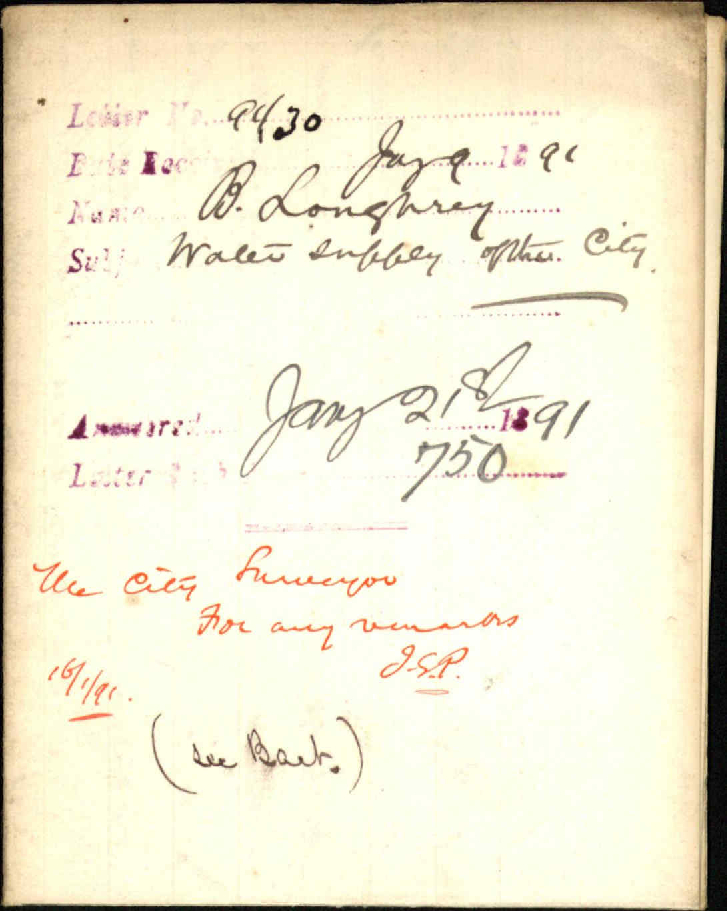 Letter No. 91/30
Date Recei Jany 9 1891
Name B. Loughrey
Subj Water supply of the City.
Answered Jany 21st 1891
Letter 750
The City Surveyor
For any remarks
J.G.P.
16/1/91.
(see Back.)